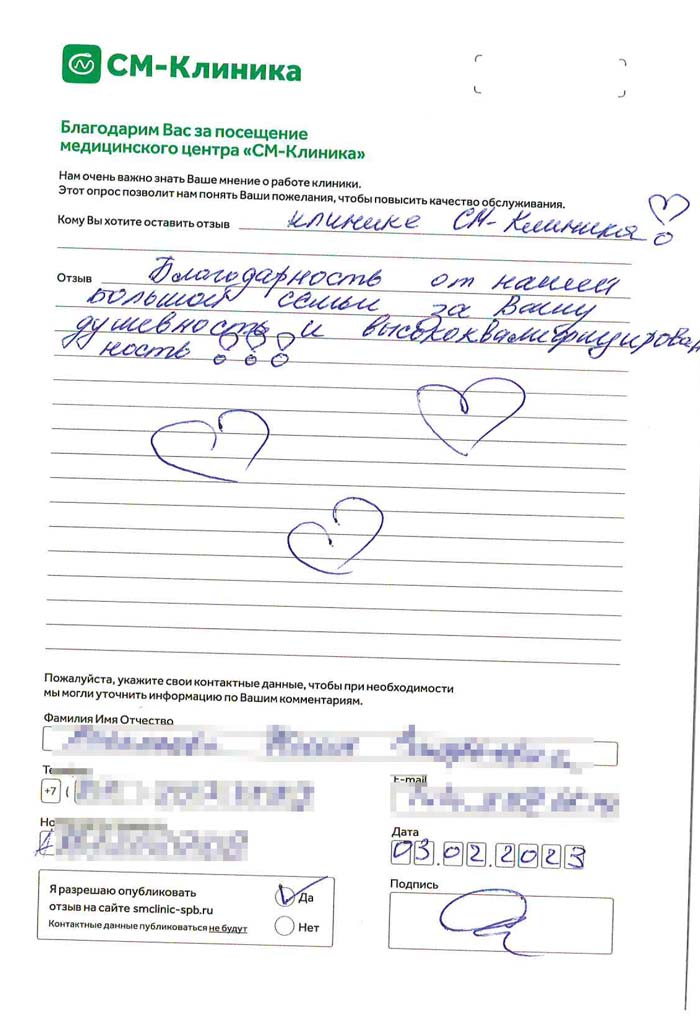 СМ-Клиника
Благодарим Вас за посещение
медицинского центра «СМ-Клиника»
Нам очень важно знать Ваше мнение о работе клиники.
Этот опрос позволит нам понять Ваши пожелания, чтобы повысить качество обслуживания.
Кому Вы хотите оставить отзыв клинике СМ-Клиника!
Отзыв Благодарность от нашей
большой семьи за Вашу
душевность и высококвалифицирован
ность !!!
Пожалуйста, укажите свои контактные данные, чтобы при необходимости
мы могли уточнить информацию по Вашим комментариям.
Фамилия Имя Отчество
E-mail
+7 (
Дата
03.02.2023
Я разрешаю опубликовать
отзыв на сайте smclinic-spb.ru
Контактные данные публиковаться не будут
Да
Нет
Подпись